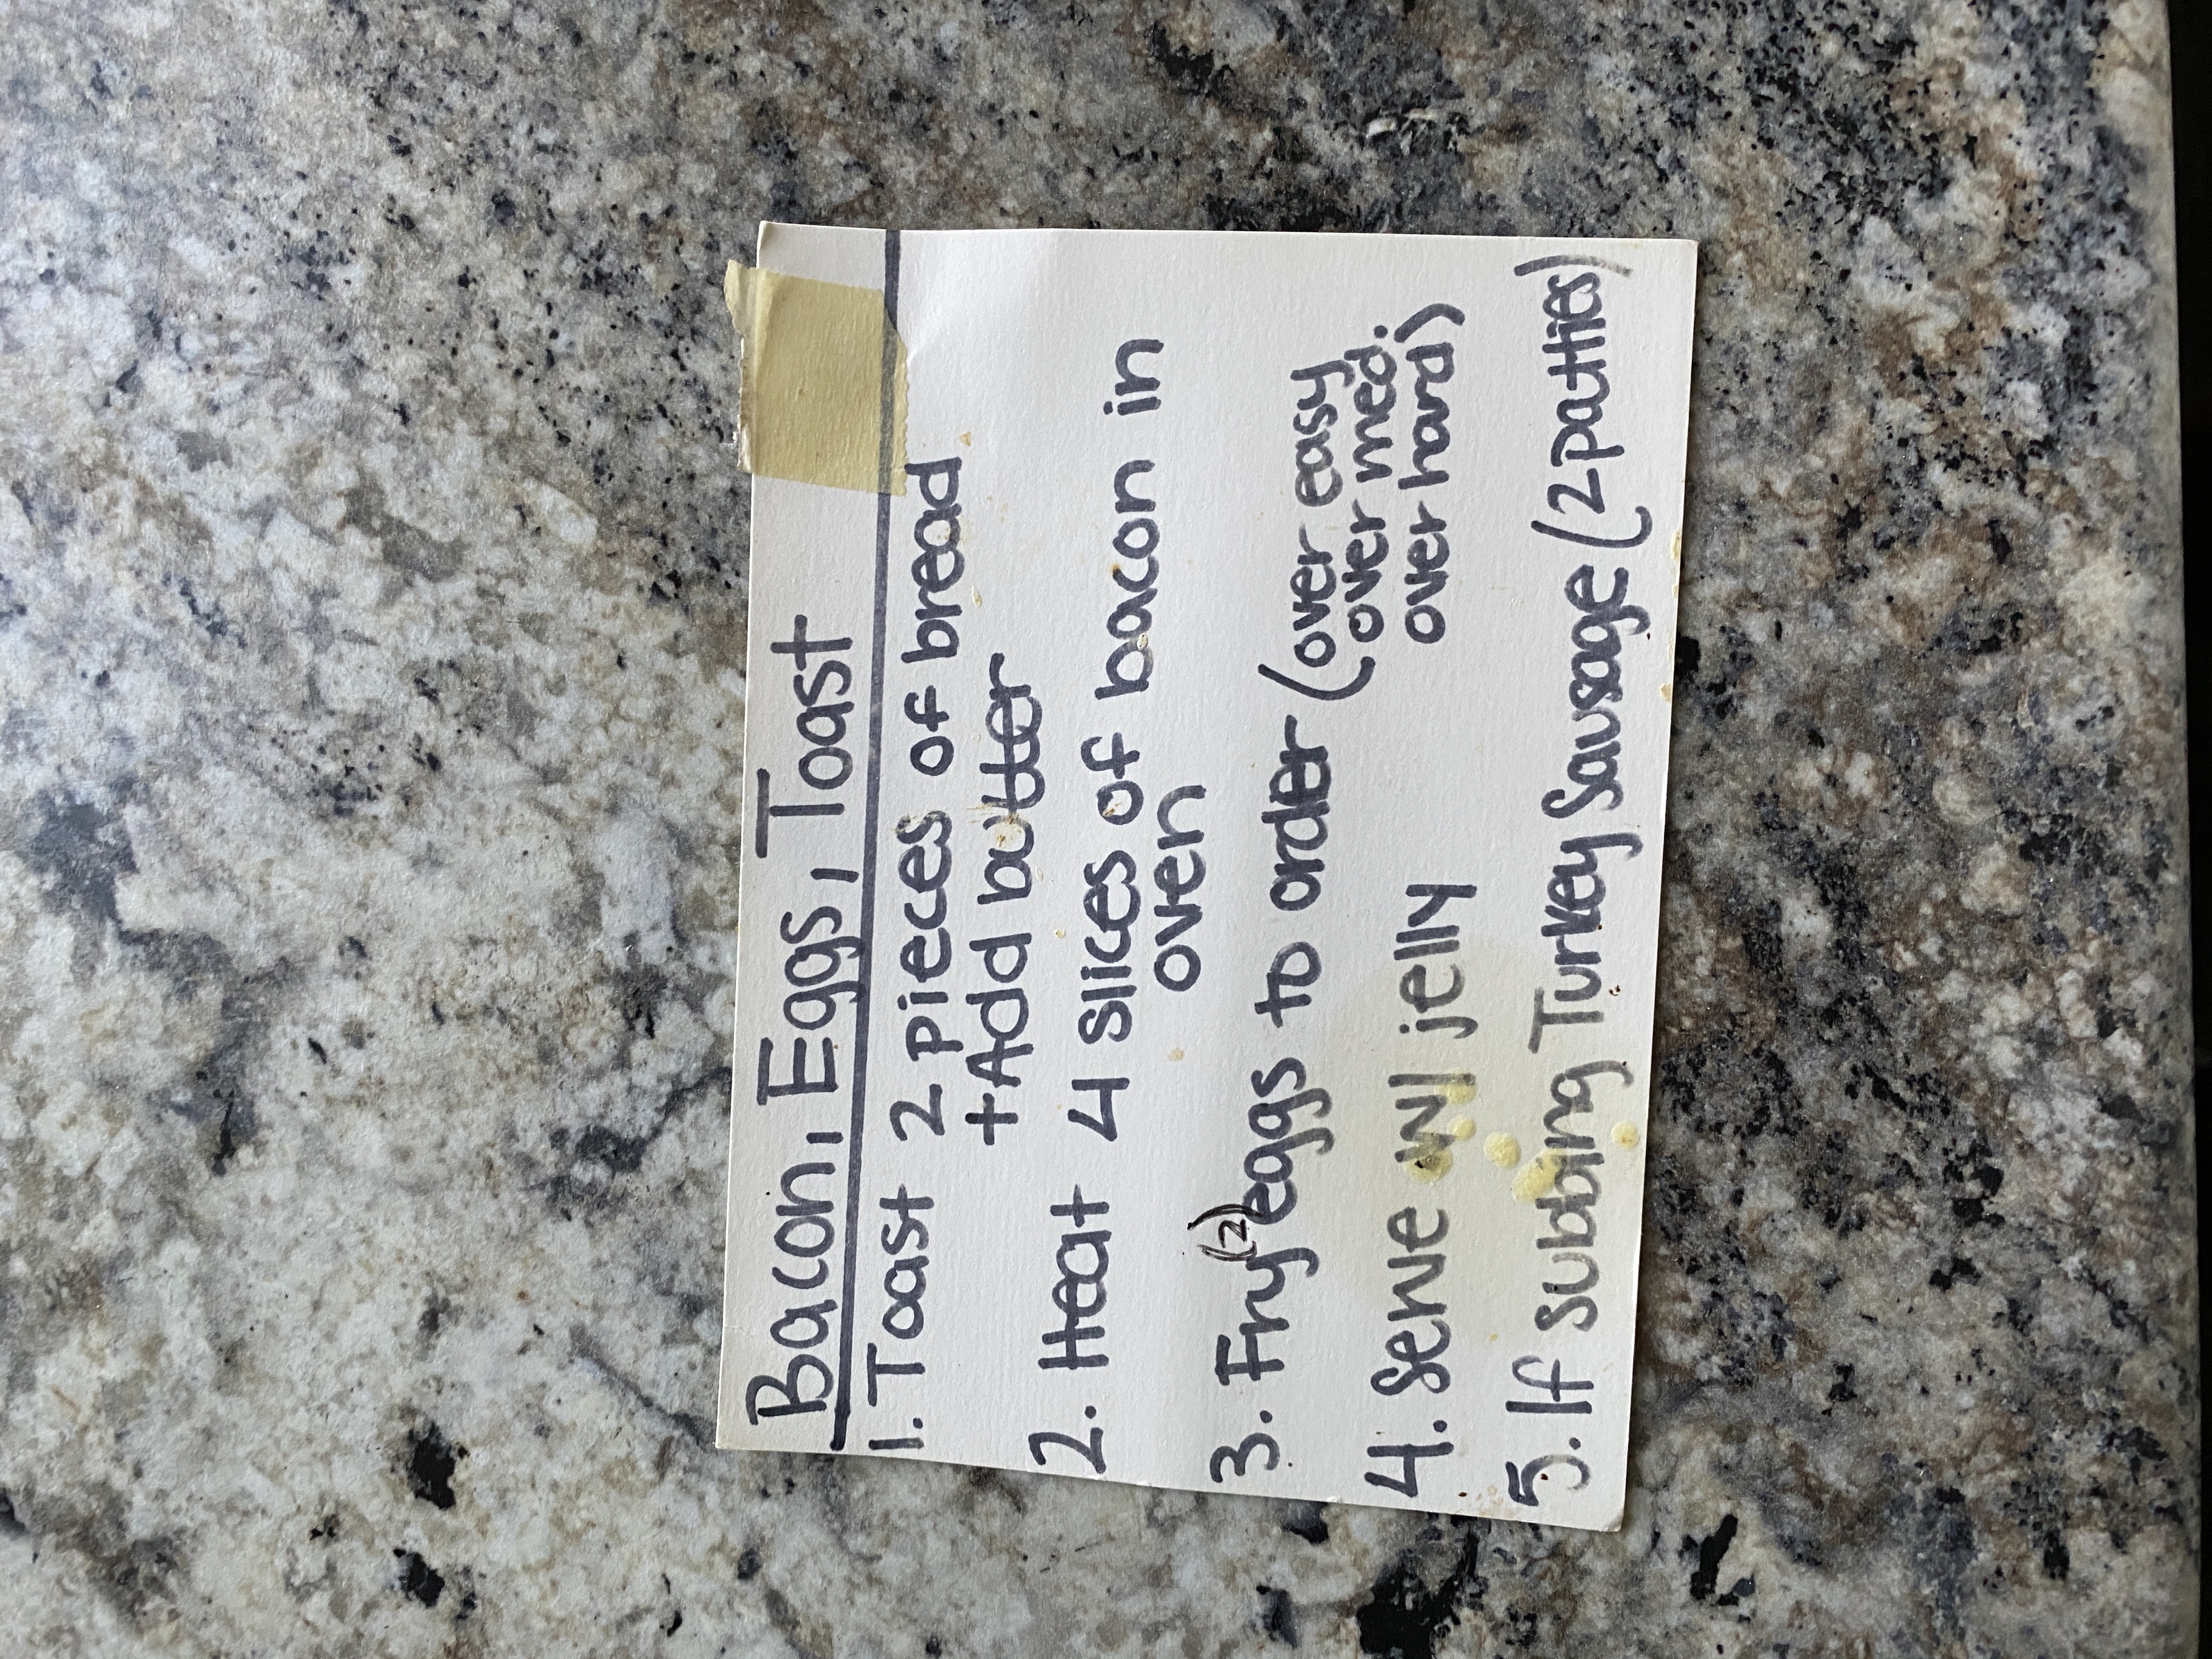 Bacon, Eggs, Toast
1. Toast 2 pieces of bread
+Add butter
2. Heat 4 slices of bacon in
oven
3. Fry (2) eggs to order (over easy
over med.
over hard)
4. Serve w/ jelly
5. If subbing Turkey Sausage (2 patties)